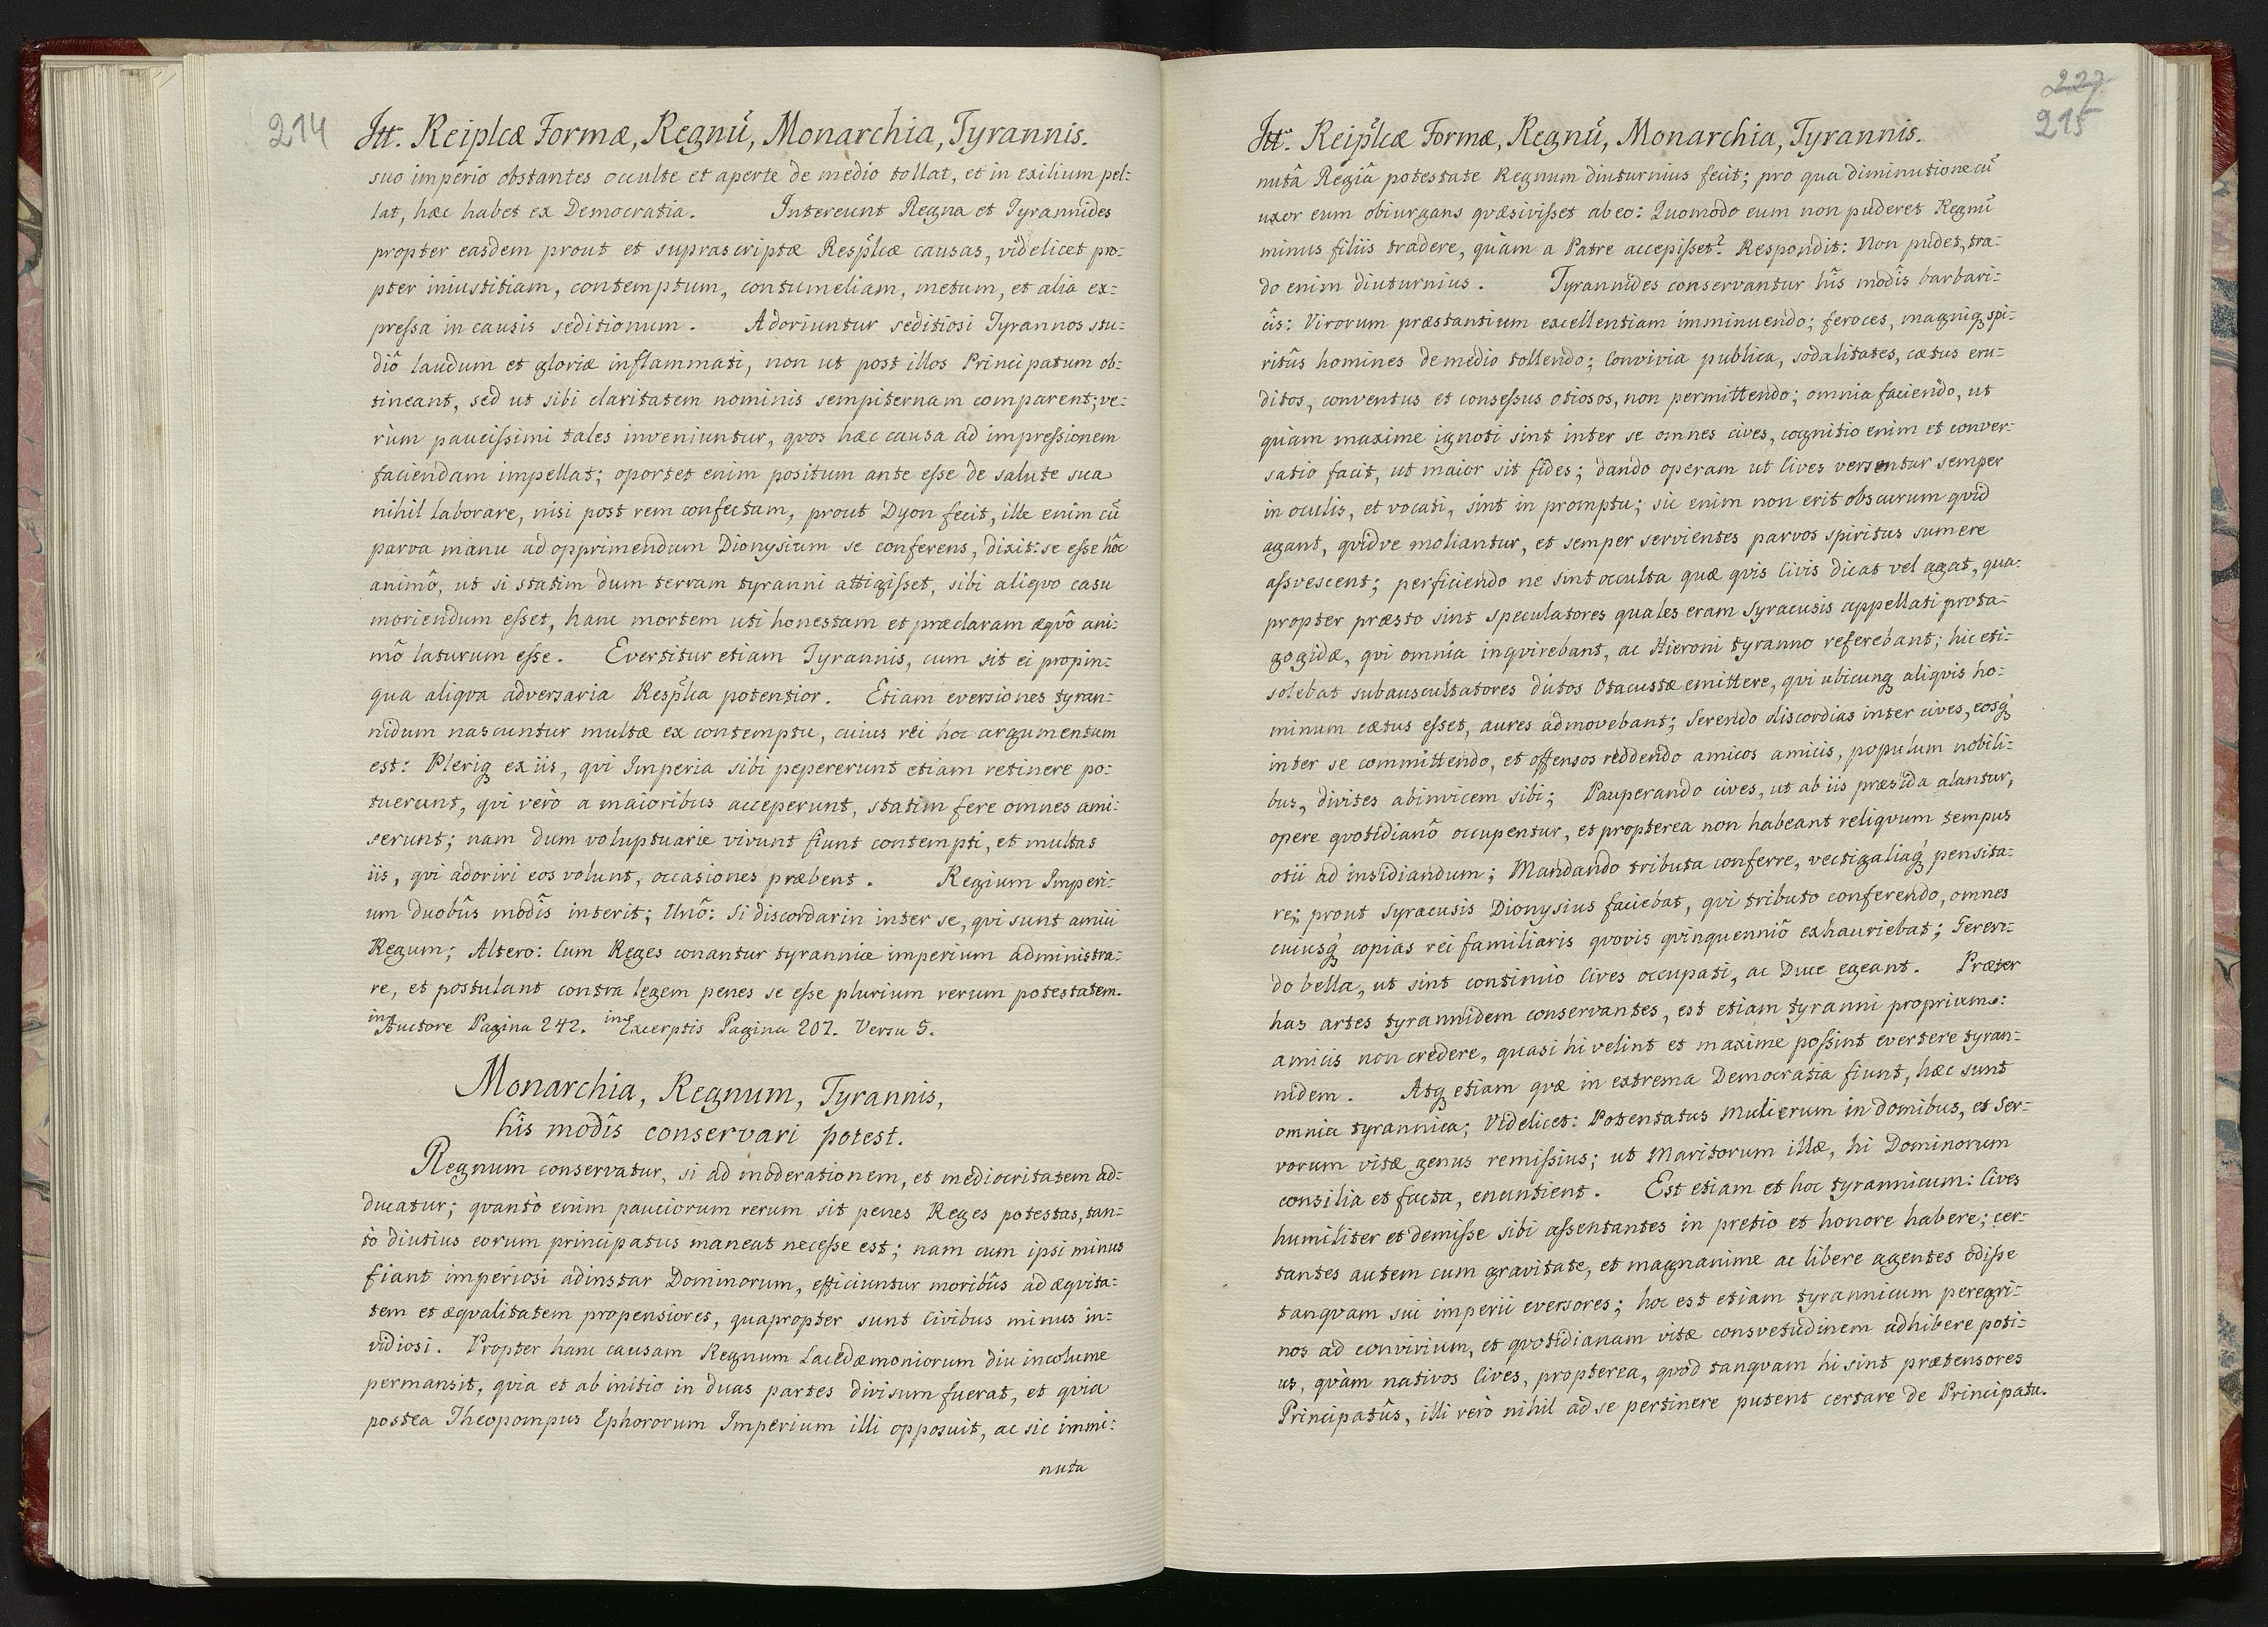 214
Itt. Reiplcæ Formæ, Regnũ, Monarchia, Tyrannis.
suo imperio obstantes occulte et aperte de medio tollat, et in exilium pel:
lat, hæc habet ex Democratia. Intereunt Regna et Tyrannides
propter easdem prout et suprascriptæ Resplcæ causas, videlicet pro:
pter iniustitiam, contemptum, contumeliam, metum, et alia ex:
pressa in causis seditionum. Adoriuntur seditiosi Tyrannos stu:
diô laudum et gloriæ inflammati, non ut post illos Principatum ob:
tineant, sed ut sibi claritatem nominis sempiternam comparent; ve:
rùm paucissimi tales inveniuntur, qvos hæc causa ad impressionem
faciendam impellat; oportet enim positum ante esse de salute sua
nihil laborare, nisi post rem confectam, prout Dyon fecit, ille enim cũ
parva manu ad opprimendum Dionysium se conferens, dixit: se esse hôc
animô, ut si statim dum terram tyranni attigisset, sibi aliqvo casu
moriendum esset, hanc mortem uti honestam et præclaram æqvô ani:
mô laturum esse. Evertitur etiam Tyrannis, cum sit ei propin:
qua aliqva adversaria Resplca potentior. Etiam eversiones tyran:
nidum nascuntur multæ ex contemptu, cuius rei hoc argumentum
est: Pleriq ex iis, qvi Imperia sibi pepererunt etiam retinere po:
tuerunt, qvi verò a maioribus acceperunt, statim fere omnes ami:
serunt; nam dum voluptuarie vivunt fiunt contempti, et multas
iis, qvi adoriri eos volunt, occasiones præbent. Regium Imperi:
um duobûs modîs interit; Unô: si discordarin inter se, qvi sunt amici
Regum; Altero: Cum Reges conantur tyrannice imperium administra:
re, et postulant contra legem penes se esse plurium rerum potestatem.
in Auctore Pagina 242. in Excerptis Pagina 201. Versu 5.
Monarchia, Regnum, Tyrannis,
hîs modîs conservari potest.
Regnum conservatur, si ad moderationem, et mediocritatem ad:
ducatur; qvantò enim pauciorum rerum sit penes Reges potestas, tan:
tò diutius eorum principatus maneat necesse est; nam cum ipsi minus
fiant imperiosi adinstar Dominorum, efficiuntur moribûs ad æqvita:
tem et æqvalitatem propensiores, quapropter sunt Civibus minus in:
vidiosi. Propter hanc causam Regnum Lacedæmoniorum diu incolume
permansit, qvia et ab initio in duas partes divisum fuerat, et qvia
postea Theopompus Ephororum Imperium illi opposuit, ac sic immi:
nuta
227
215
Itt. Reiplcæ Formæ, Regnũ, Monarchia, Tyrannis.
nutâ Regiâ potestate Regnum diuturnius fecit; pro qua diminutione cũ
uxor eum obiurgans qvæsivisset ab eo: Quomodo eum non puderet Regnũ
minus filiis tradere, quàm a Patre accepisset? Respondit: Non pudet, tra:
do enim diuturnius. Tyrannides conservantur hîs modîs barbari:
cîs: Virorum præstantium excellentiam imminuendo; feroces, magniq spi:
ritûs homines de medio tollendo; Convivia publica, sodalitates, cætus eru:
ditos, conventus et consessus otiosos, non permittendo; omnia faciendo, ut
quàm maxime ignoti sint inter se omnes cives, cognitio enim et conver:
satio facit, ut maior sit fides; dando operam ut Cives versentur semper
in oculis, et vocati, sint in promptu; sic enim non erit obscurum qvid
agant, qvidve moliantur, et semper servientes parvos spiritus sumere
assvescent; perficiendo ne sint occulta quæ qvis Civis dicat vel agat, qua:
propter præsto sint speculatores quales eram Syracusis appellati prota:
gogidæ, qvi omnia inqvirebant, ac Hieroni tyranno referebant; hic eti:
solebat subauscultatores dictos Otacustæ emittere, qvi ubicunq aliqvis ho:
minum cætus esset, aures admovebant; Serendo discordias inter cives, eosq
inter se committendo, et offensos reddendo amicos amicis, populum nobili:
bus, divites abinvicem sibi; Pauperando cives, ut ab iis præsida alantur,
opere qvotidianô occupentur, et propterea non habeant reliqvum tempus
otii ad insidiandum; Mandando tributa conferre, vectigaliaq pensita:
re; prout Syracusis Dionysius faciebat, qvi tributo conferendo, omnes
cuiusq copias rei familiaris qvovis qvinquenniô exhauriebat; Geren:
do bella, ut sint continuò Cives occupati, ac Duce egeant. Præter
has artes tyrannidem conservantes, est etiam tyranni proprium:
amicis non credere, quasi hi velint et maxime possint evertere tyran:
nidem. Atq etiam qvæ in extrema Democratia fiunt, hæc sunt
omnia tyrannica; Videlicet: Potentatus Mulierum in domibus, et Ser:
vorum vitæ genus remissius; ut Maritorum illæ, hi Dominorum
consilia et facta, enuntient. Est etiam et hoc tyrannicum: Cives
humiliter et demisse sibi assentantes in pretio et honore habere; cer:
tantes autem cum gravitate, et magnanime ac libere agentes odisse
tanqvam sui imperii eversores; hoc est etiam tyrannicum peregri:
nos ad convivium, et qvotidianam vitæ consvetudinem adhibere poti:
us, qvàm nativos Cives, propterea, qvod tanqvam hi sint prætensores
Principatûs, illi verò nihil ad se pertinere putent certare de Principatu.